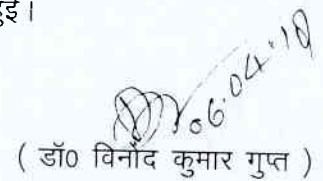 हुई।
06.04.18
( डॉ0 विनोद कुमार गुप्त )